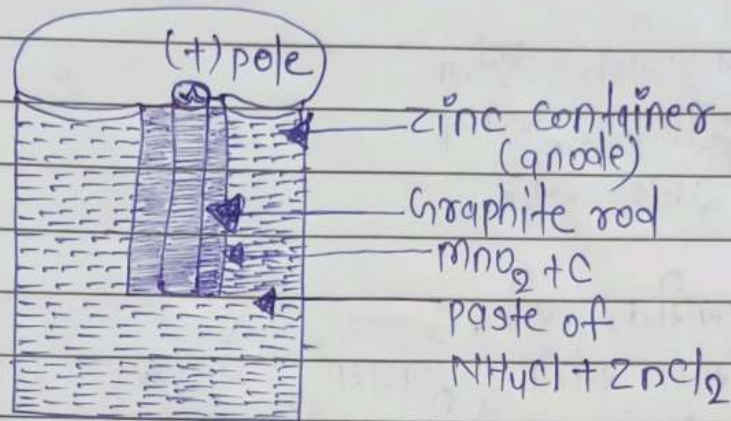 (+) pole
zinc container
(anode)
Graphite rod
MnO2 + C
paste of
NH4Cl + ZnCl2